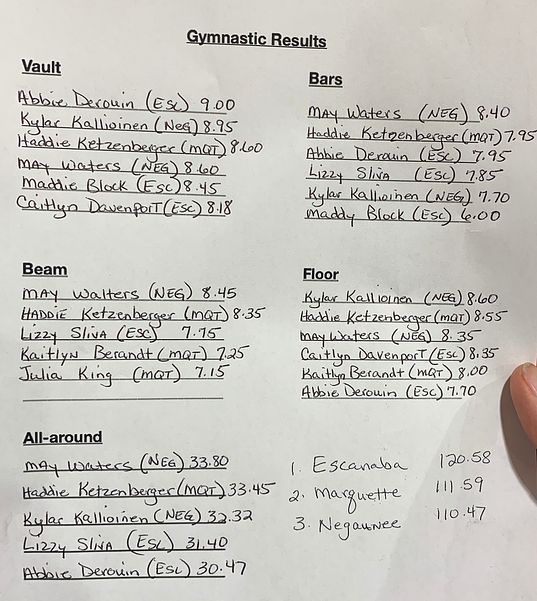 Gymnastic Results
Vault
Abbie Derouin (Esc) 9.00
Kylar Kallioinen (Neg) 8.95
Haddie Ketzenberger (MQT) 8.60
MAY Waters (NEG) 8.60
Maddie Block (Esc) 8.45
Caitlyn Davenport (Esc) 8.18
Bars
MAY Waters (NEG) 8.40
Haddie Ketzenberger (MQT) 7.95
Abbie Derouin (Esc) 7.95
Lizzy Sliva (Esc) 7.85
Kylar Kallioinen (NEG) 7.70
Maddy Block (Esc) 6.00
Beam
MAY Walters (NEG) 8.45
HADDIE Ketzenberger (MQT) 8.35
Lizzy Sliva (Esc) 7.75
Kaitlyn Berandt (MQT) 7.25
Julia King (MQT) 7.15
Floor
Kylar Kallioinen (NEG) 8.60
Haddie Ketzenberger (MQT) 8.55
MAY Waters (NEG) 8.35
Caitlyn Davenport (Esc) 8.35
Kaitlyn Berandt (MQT) 8.00
Abbie Derouin (ESC) 7.70
All-around
MAY Waters (NEG) 33.80
Haddie Ketzenberger (MQT) 33.45
Kylar Kallioinen (NEG) 32.32
Lizzy Sliva (Esc) 31.40
Abbie Derouin (Esc) 30.47
1. Escanaba 120.58
2. Marquette 111.59
3. Negaunee 110.47